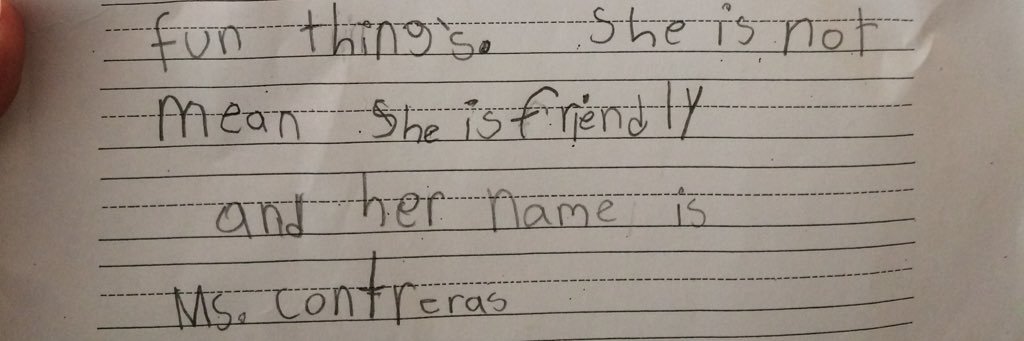 fun thing's. She is not
mean She is friendly
and her name is
Ms. Contreras